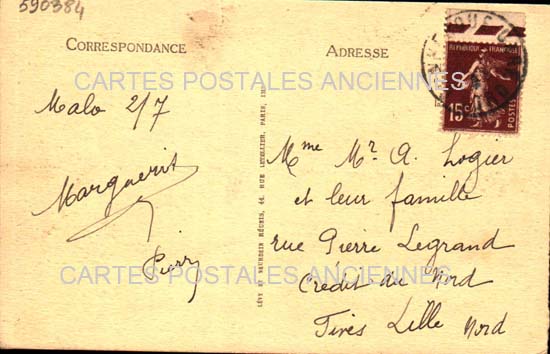 590384
CORRESPONDANCE
ADRESSE
RÉPUBLIQUE FRANÇAISE
15c
POSTES
CARTES POSTALES ANCIENNES
Malo 2/7
Marguerit
Pierry
LÉVY ET NEURDEIN RÉUNIS, 44, RUE LETELLIER, PARIS, IMP.
Mme Mr A. Logier
et leur famille
rue Pierre Legrand
Crédit du Nord
Fives Lille Nord
CARTES POSTALES ANCIENNES